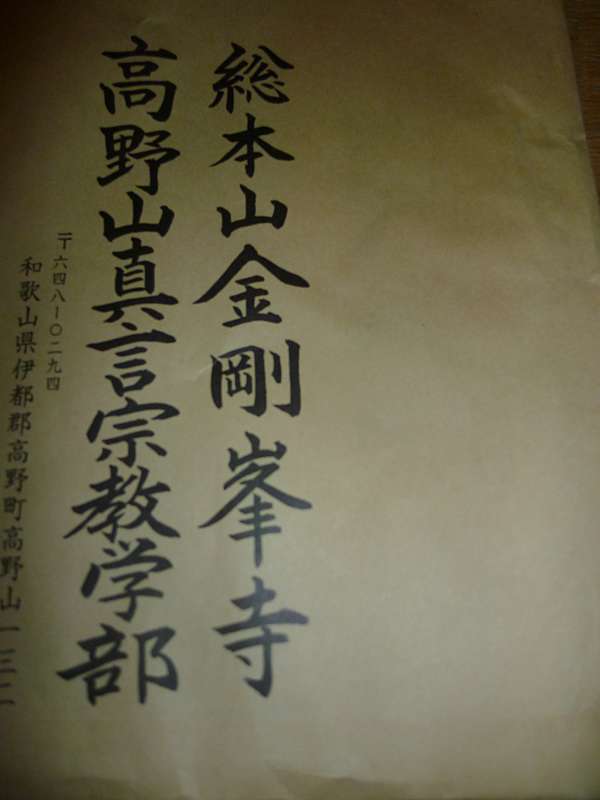 総本山金剛峯寺
高野山真言宗教学部
〒六四八-〇二九四
和歌山県伊都郡高野町高野山一三二